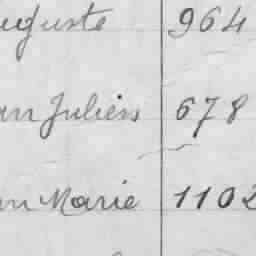 uguste 964
an Julien 678
an Marie 1102